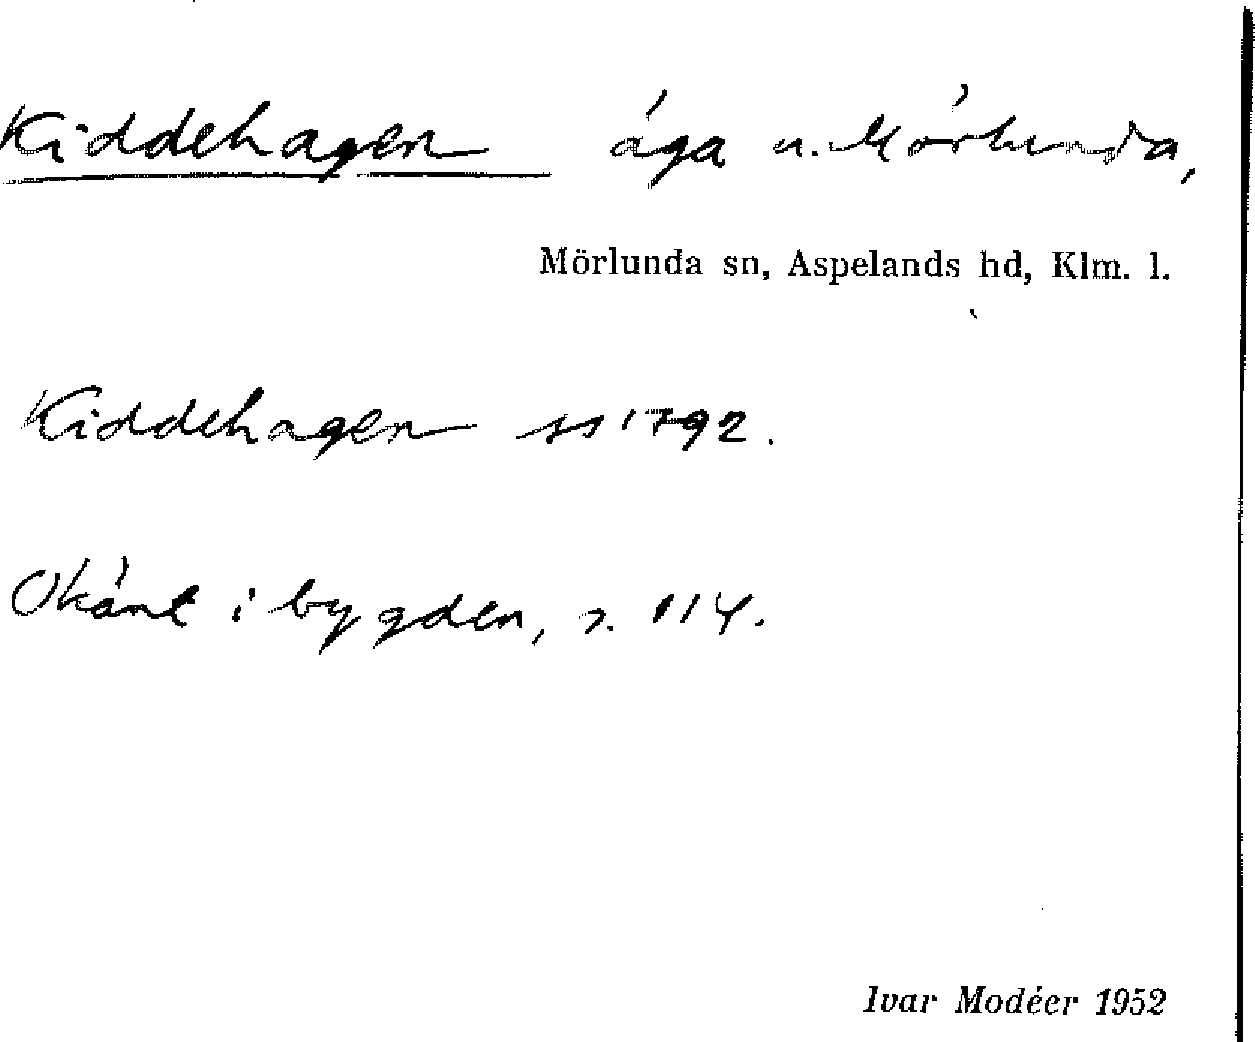 Kiddehagen äga u. Mörlunda,
Mörlunda sn, Aspelands hd, Klm. l.
Kiddehagen ss 1792.
Okänt i bygden, s. 114.
Ivar Modéer 1952